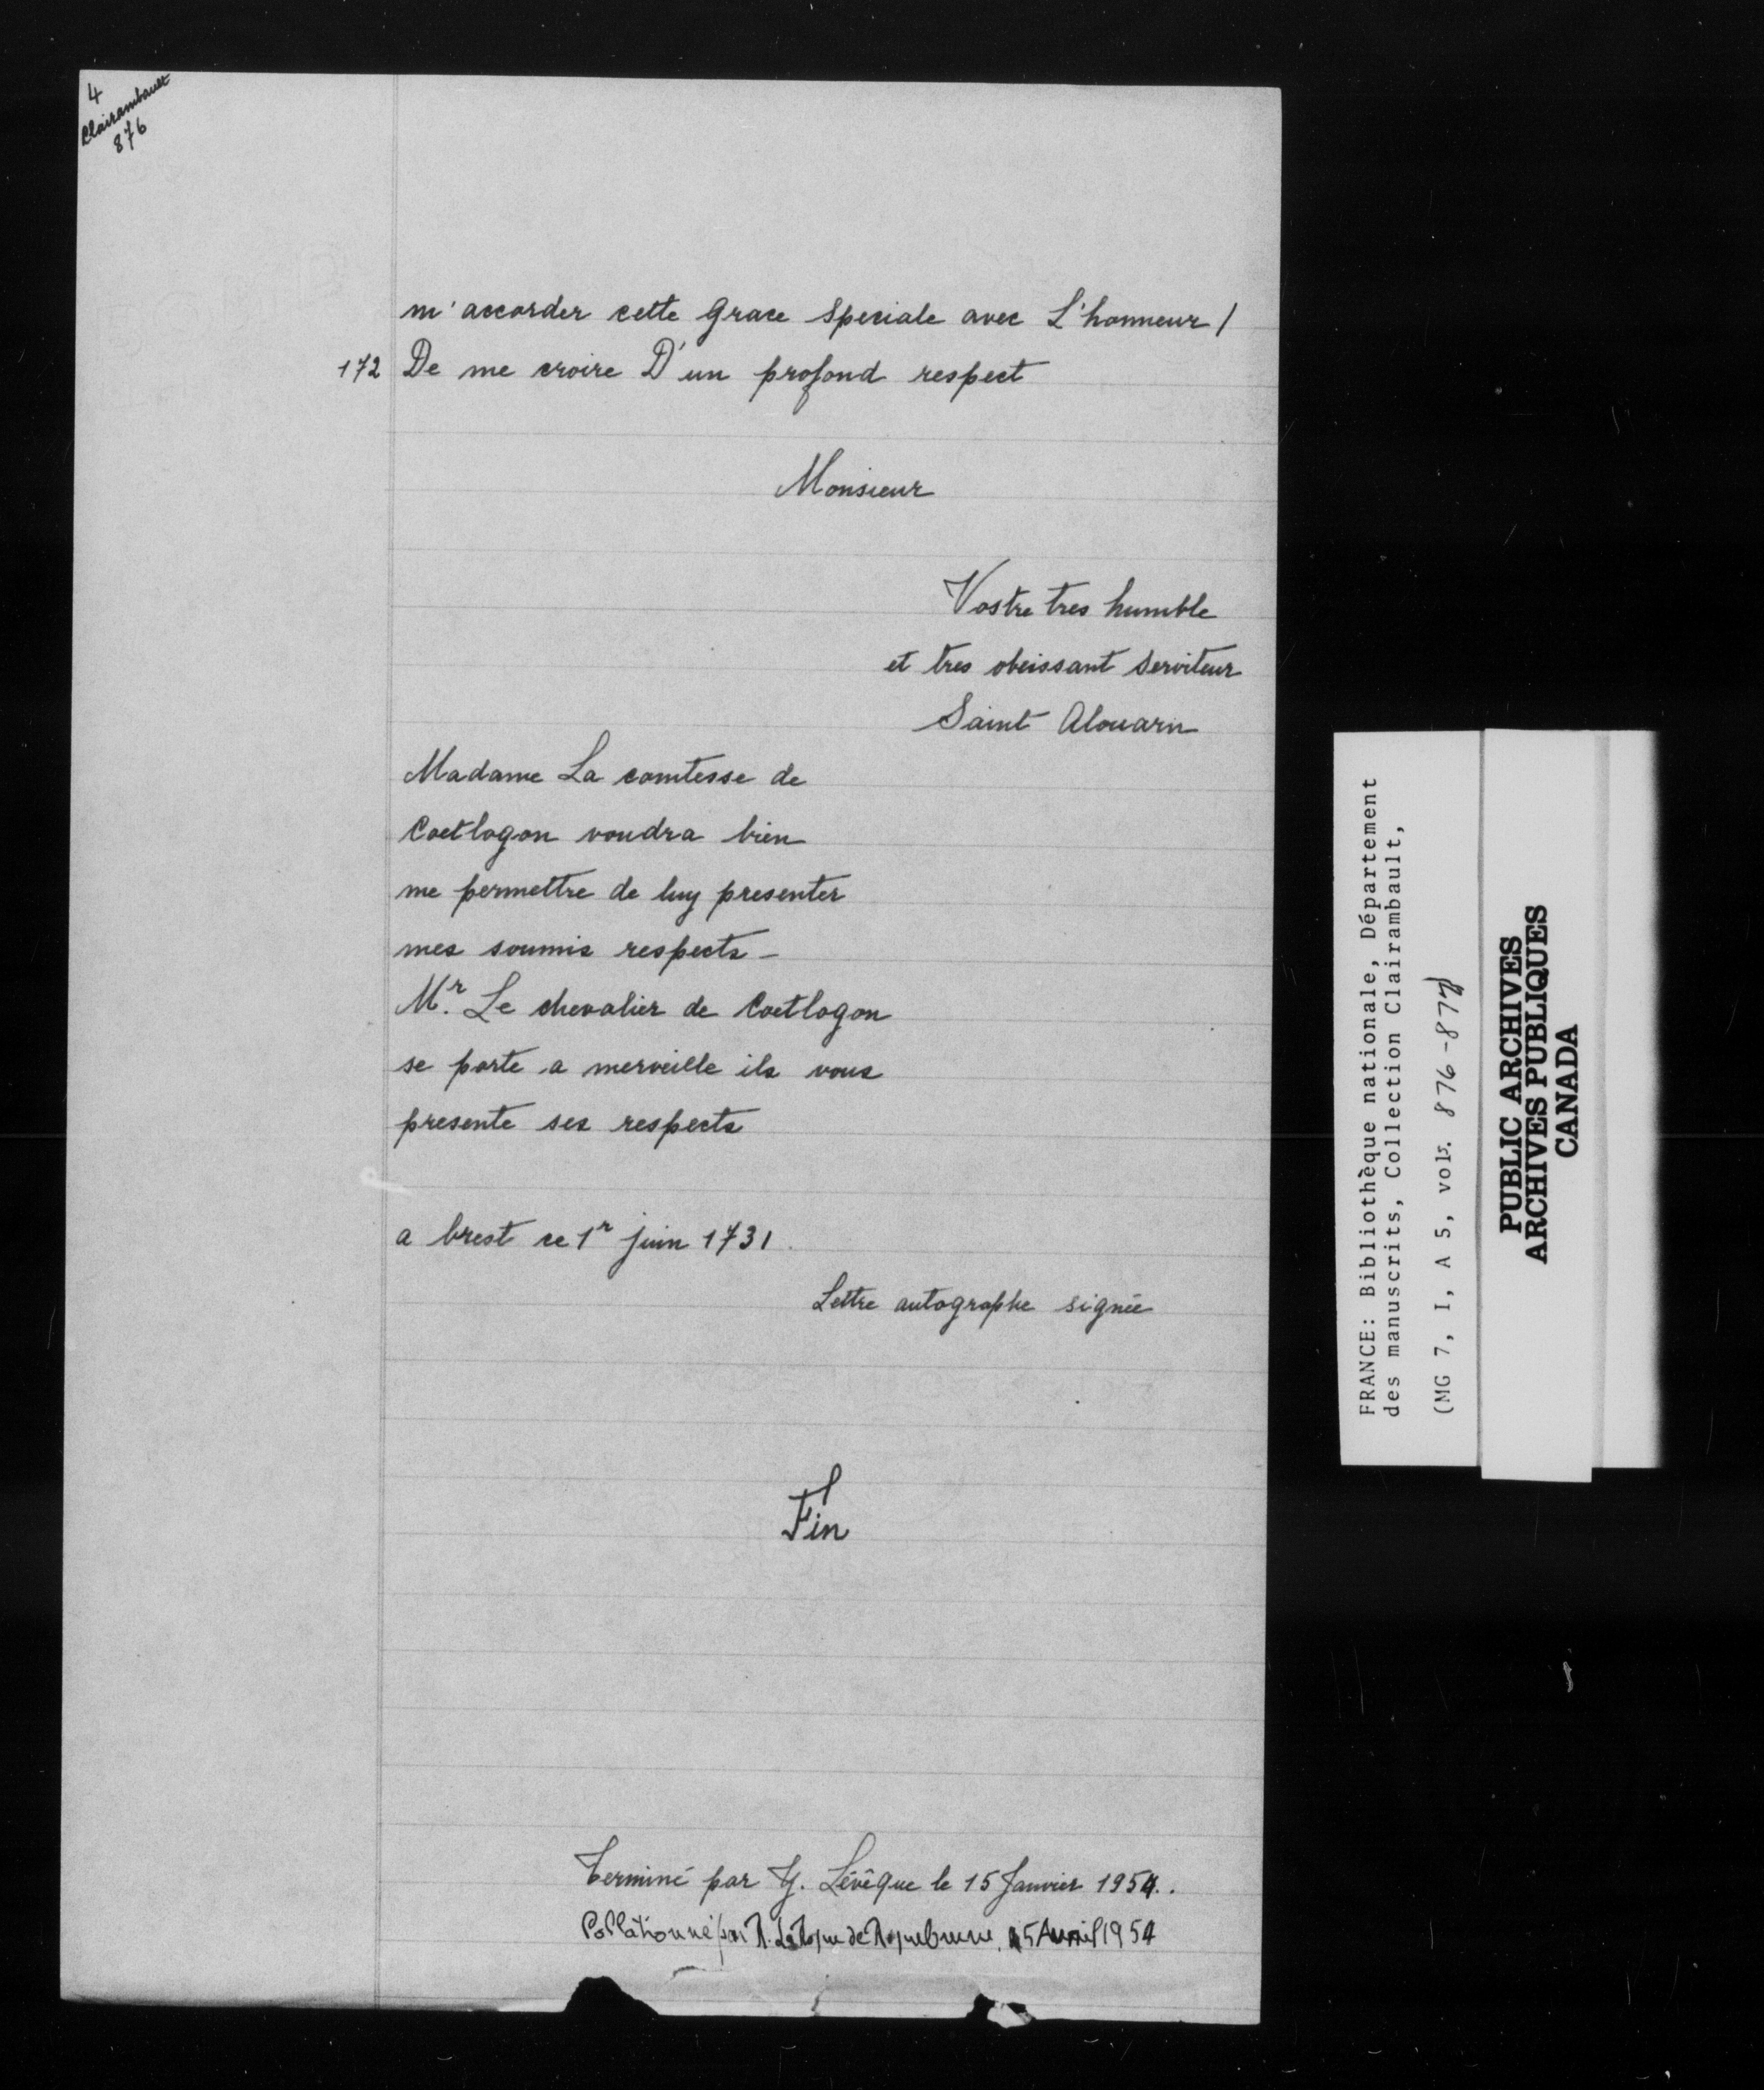 4
Clairambault
876
m'accorder cette Grace Speciale avec L'honneur /
172 De me croire D'un profond respect
Monsieur
Vostre tres humble
et tres obeissant serviteur
Saint Alouarn
Madame La comtesse de
Coetlogon voudra bien
me permettre de luy presenter
mes soumis respects -
Mr. Le chevalier de Coetlogon
se porte a merveille ils vous
presente ses respects
a brest ce 1r juin 1731.
Lettre autographe signée
Fin
Terminé par Y. Lévêque le 15 Janvier 1954..
Collationné par R. La Roque de Roquebrune, 15 Avril 1954
FRANCE: Bibliothèque nationale, Département
des manuscrits, Collection Clairambault,
(MG 7, I, A 5, vols. 876-877)
PUBLIC ARCHIVES
ARCHIVES PUBLIQUES
CANADA